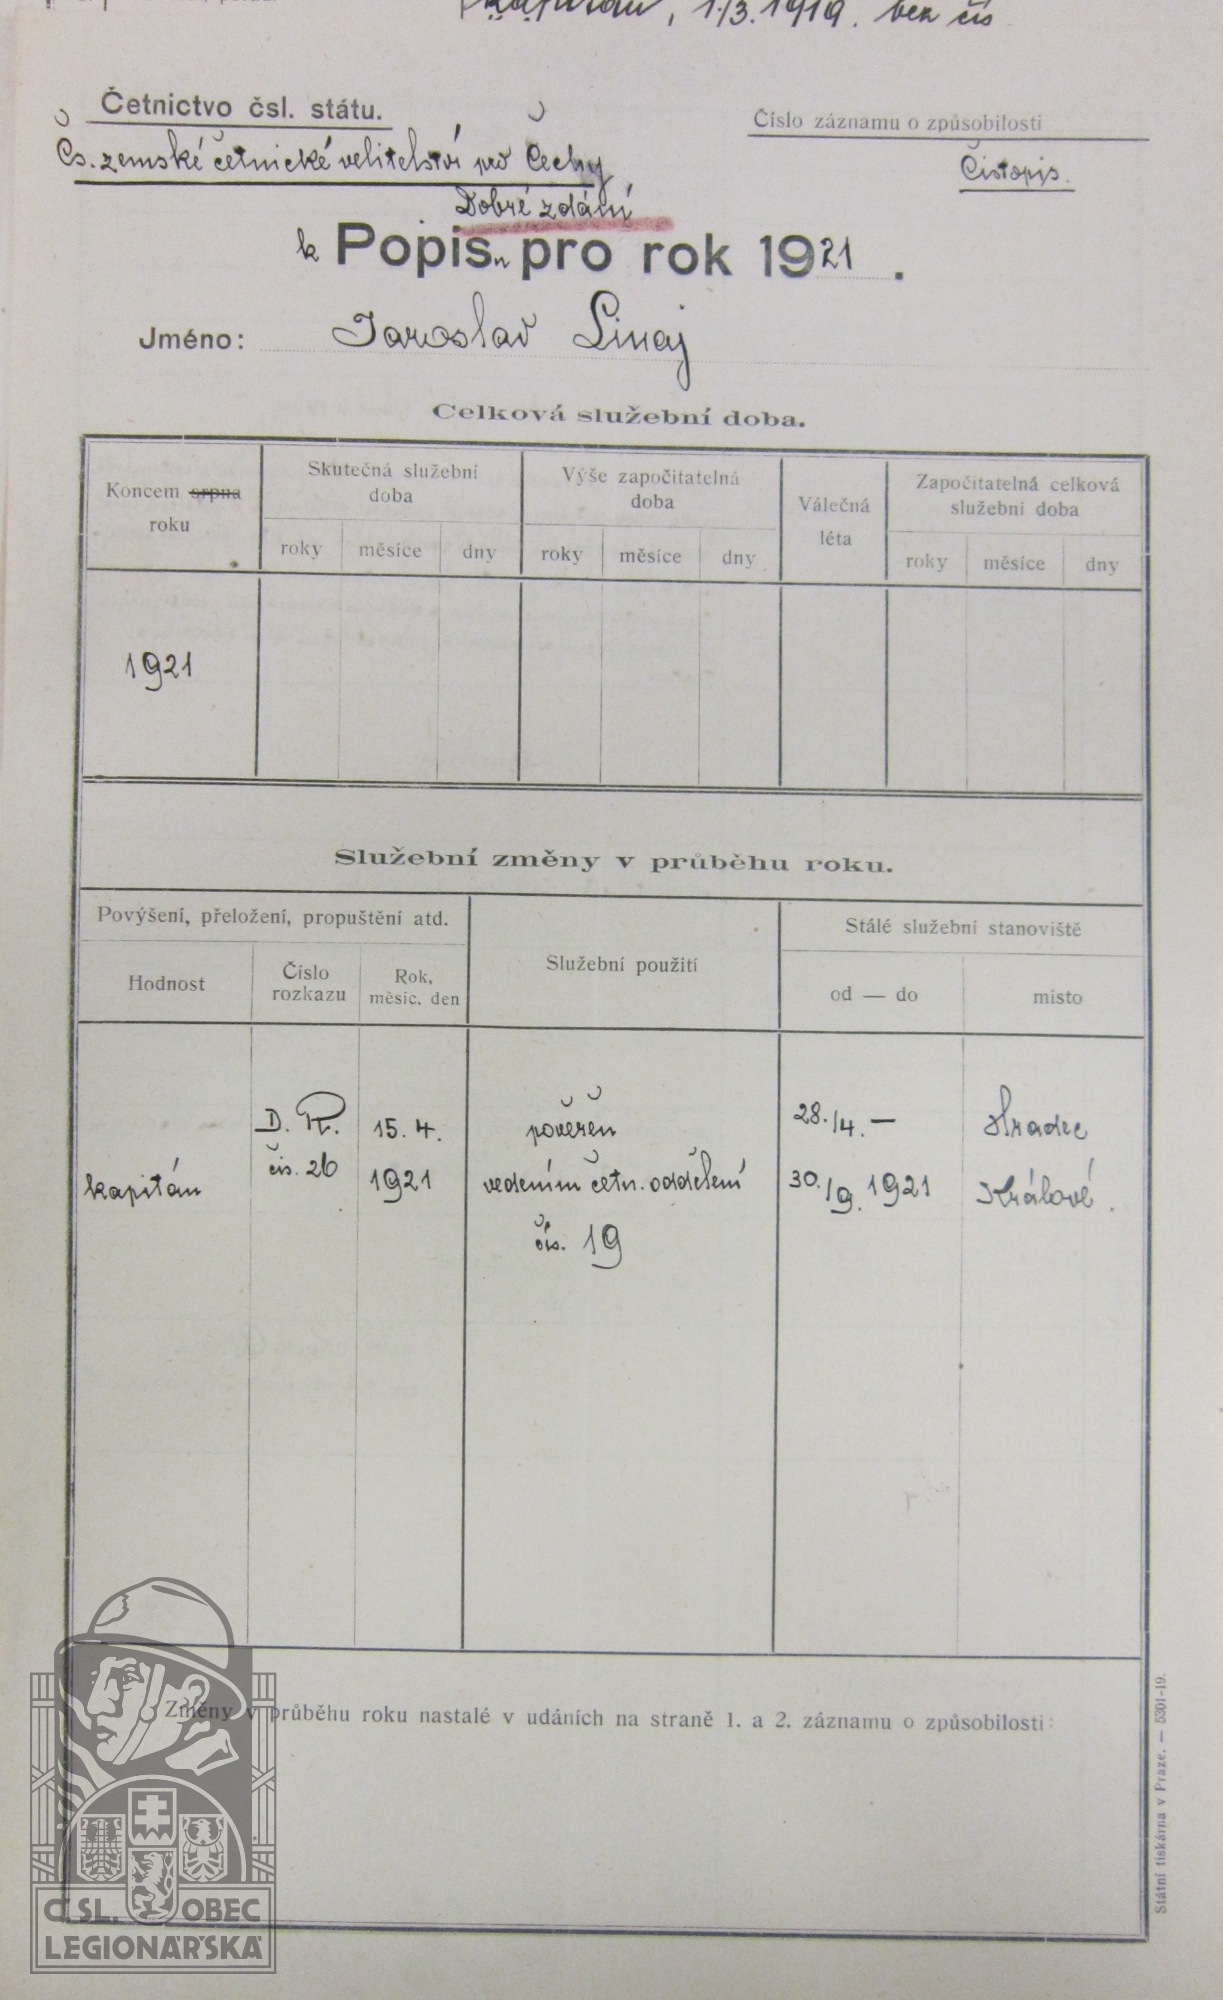 kapitán, 1./3. 1919. bez čís
Četnictvo čsl. státu.
Čs. zemské četnické velitelství pro Čechy
Číslo záznamu o způsobilosti
Čistopis.
Dobré zdání
k Popisu pro rok 1921.
Jméno: Jaroslav Linaj
Celková služební doba.
Koncem srpna roku
Skutečná služební doba
Výše započitatelná doba
Válečná léta
Započitatelná celková služební doba
roky měsíce dny roky měsíce dny roky měsíce dny
1921
Služební změny v průběhu roku.
Povýšení, přeložení, propuštění atd.
Služební použití
Stálé služební stanoviště
Hodnost
Číslo rozkazu
Rok, měsíc, den
od — do
místo
kapitán
D. R.
čís. 26
15. 4.
1921
pověřen
vedením četn. oddělení
čís. 19
28./4. —
30./9. 1921
Hradec
Králové.
Změny v průběhu roku nastalé v udáních na straně 1. a 2. záznamu o způsobilosti:
Státní tiskárna v Praze. — 5301-19.
Č SL. OBEC
LEGIONÁŘSKÁ